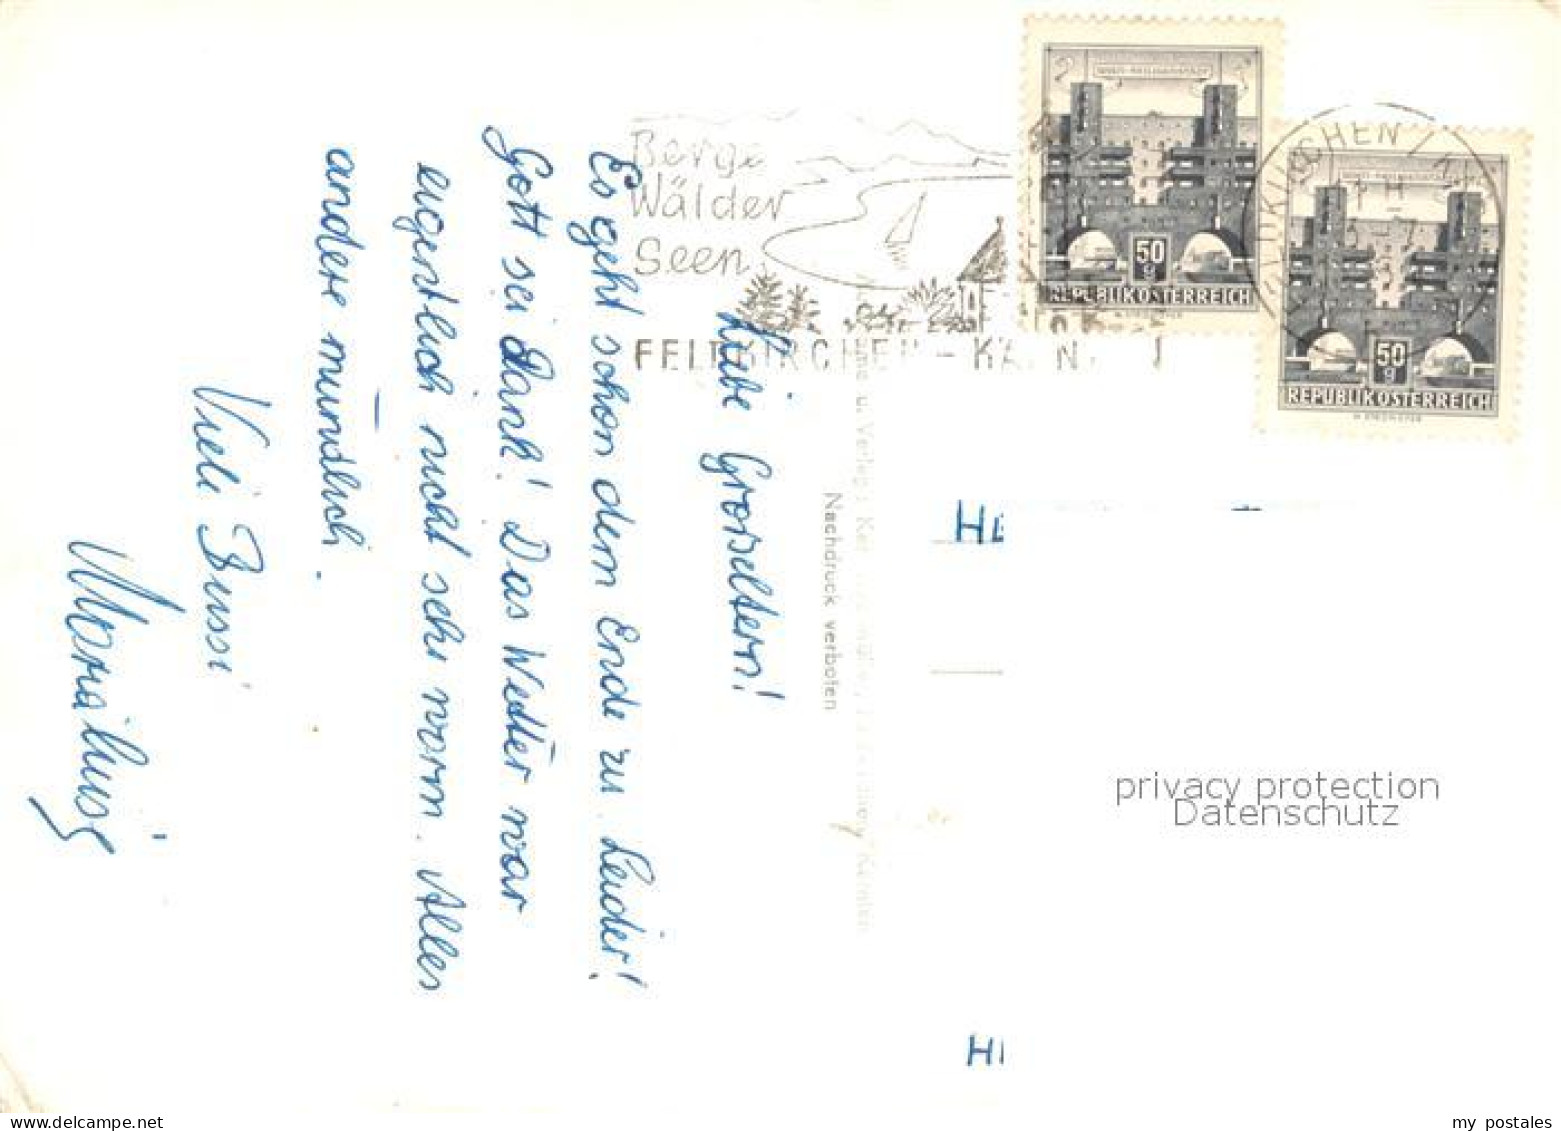 Liebe Grosseltern!
Es geht schon dem Ende zu. Leider!
Gott sei Dank! Das Wetter war
eigentlich nicht sehr warm. Alles
andere mündlich.
Viele Bussi
Berge
Wälder
Seen
FELDKIRCHEN - KÄRNTEN
50 g
REPUBLIK ÖSTERREICH
50 g
REPUBLIK ÖSTERREICH
u. Verlag:
Nachdruck verboten
privacy protection
Datenschutz
my postales